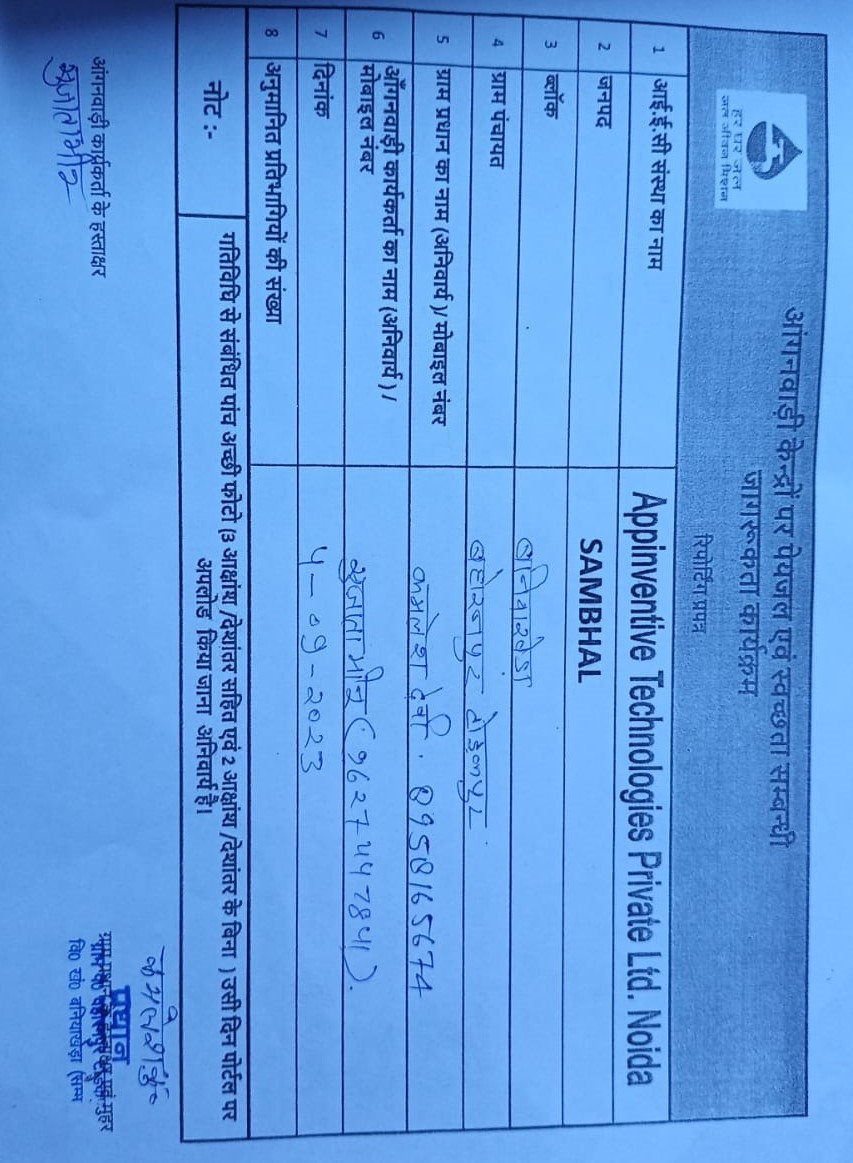 हर घर जल
जल जीवन मिशन
आंगनवाड़ी केन्द्रों पर पेयजल एवं स्वच्छता सम्बन्धी
जागरूकता कार्यक्रम
रिपोर्टिंग प्रपत्र
1 आई.ई.सी संस्था का नाम Appinventive Technologies Private Ltd. Noida
2 जनपद SAMBHAL
3 ब्लॉक बनियाखेडा
4 ग्राम पंचायत
5 ग्राम प्रधान का नाम (अनिवार्य)/ मोबाइल नंबर कमलेश देवी . 8958165674
6 आँगनवाड़ी कार्यकर्ता का नाम (अनिवार्य) /
मोबाइल नंबर सुजाता
7 दिनांक 5-09-2023
8 अनुमानित प्रतिभागियों की संख्या
नोट :- गतिविधि से संबंधित पांच अच्छी फोटो (3 आक्षांय /देशांतर सहित एवं 2 आक्षांय /देशांतर के बिना ) उसी दिन पोर्टल पर
अपलोड किया जाना अनिवार्य है।
आंगनवाड़ी कार्यकर्ता के हस्ताक्षर
प्रधान
वि0 खं0 बनियाखेड़ा (सम्भ